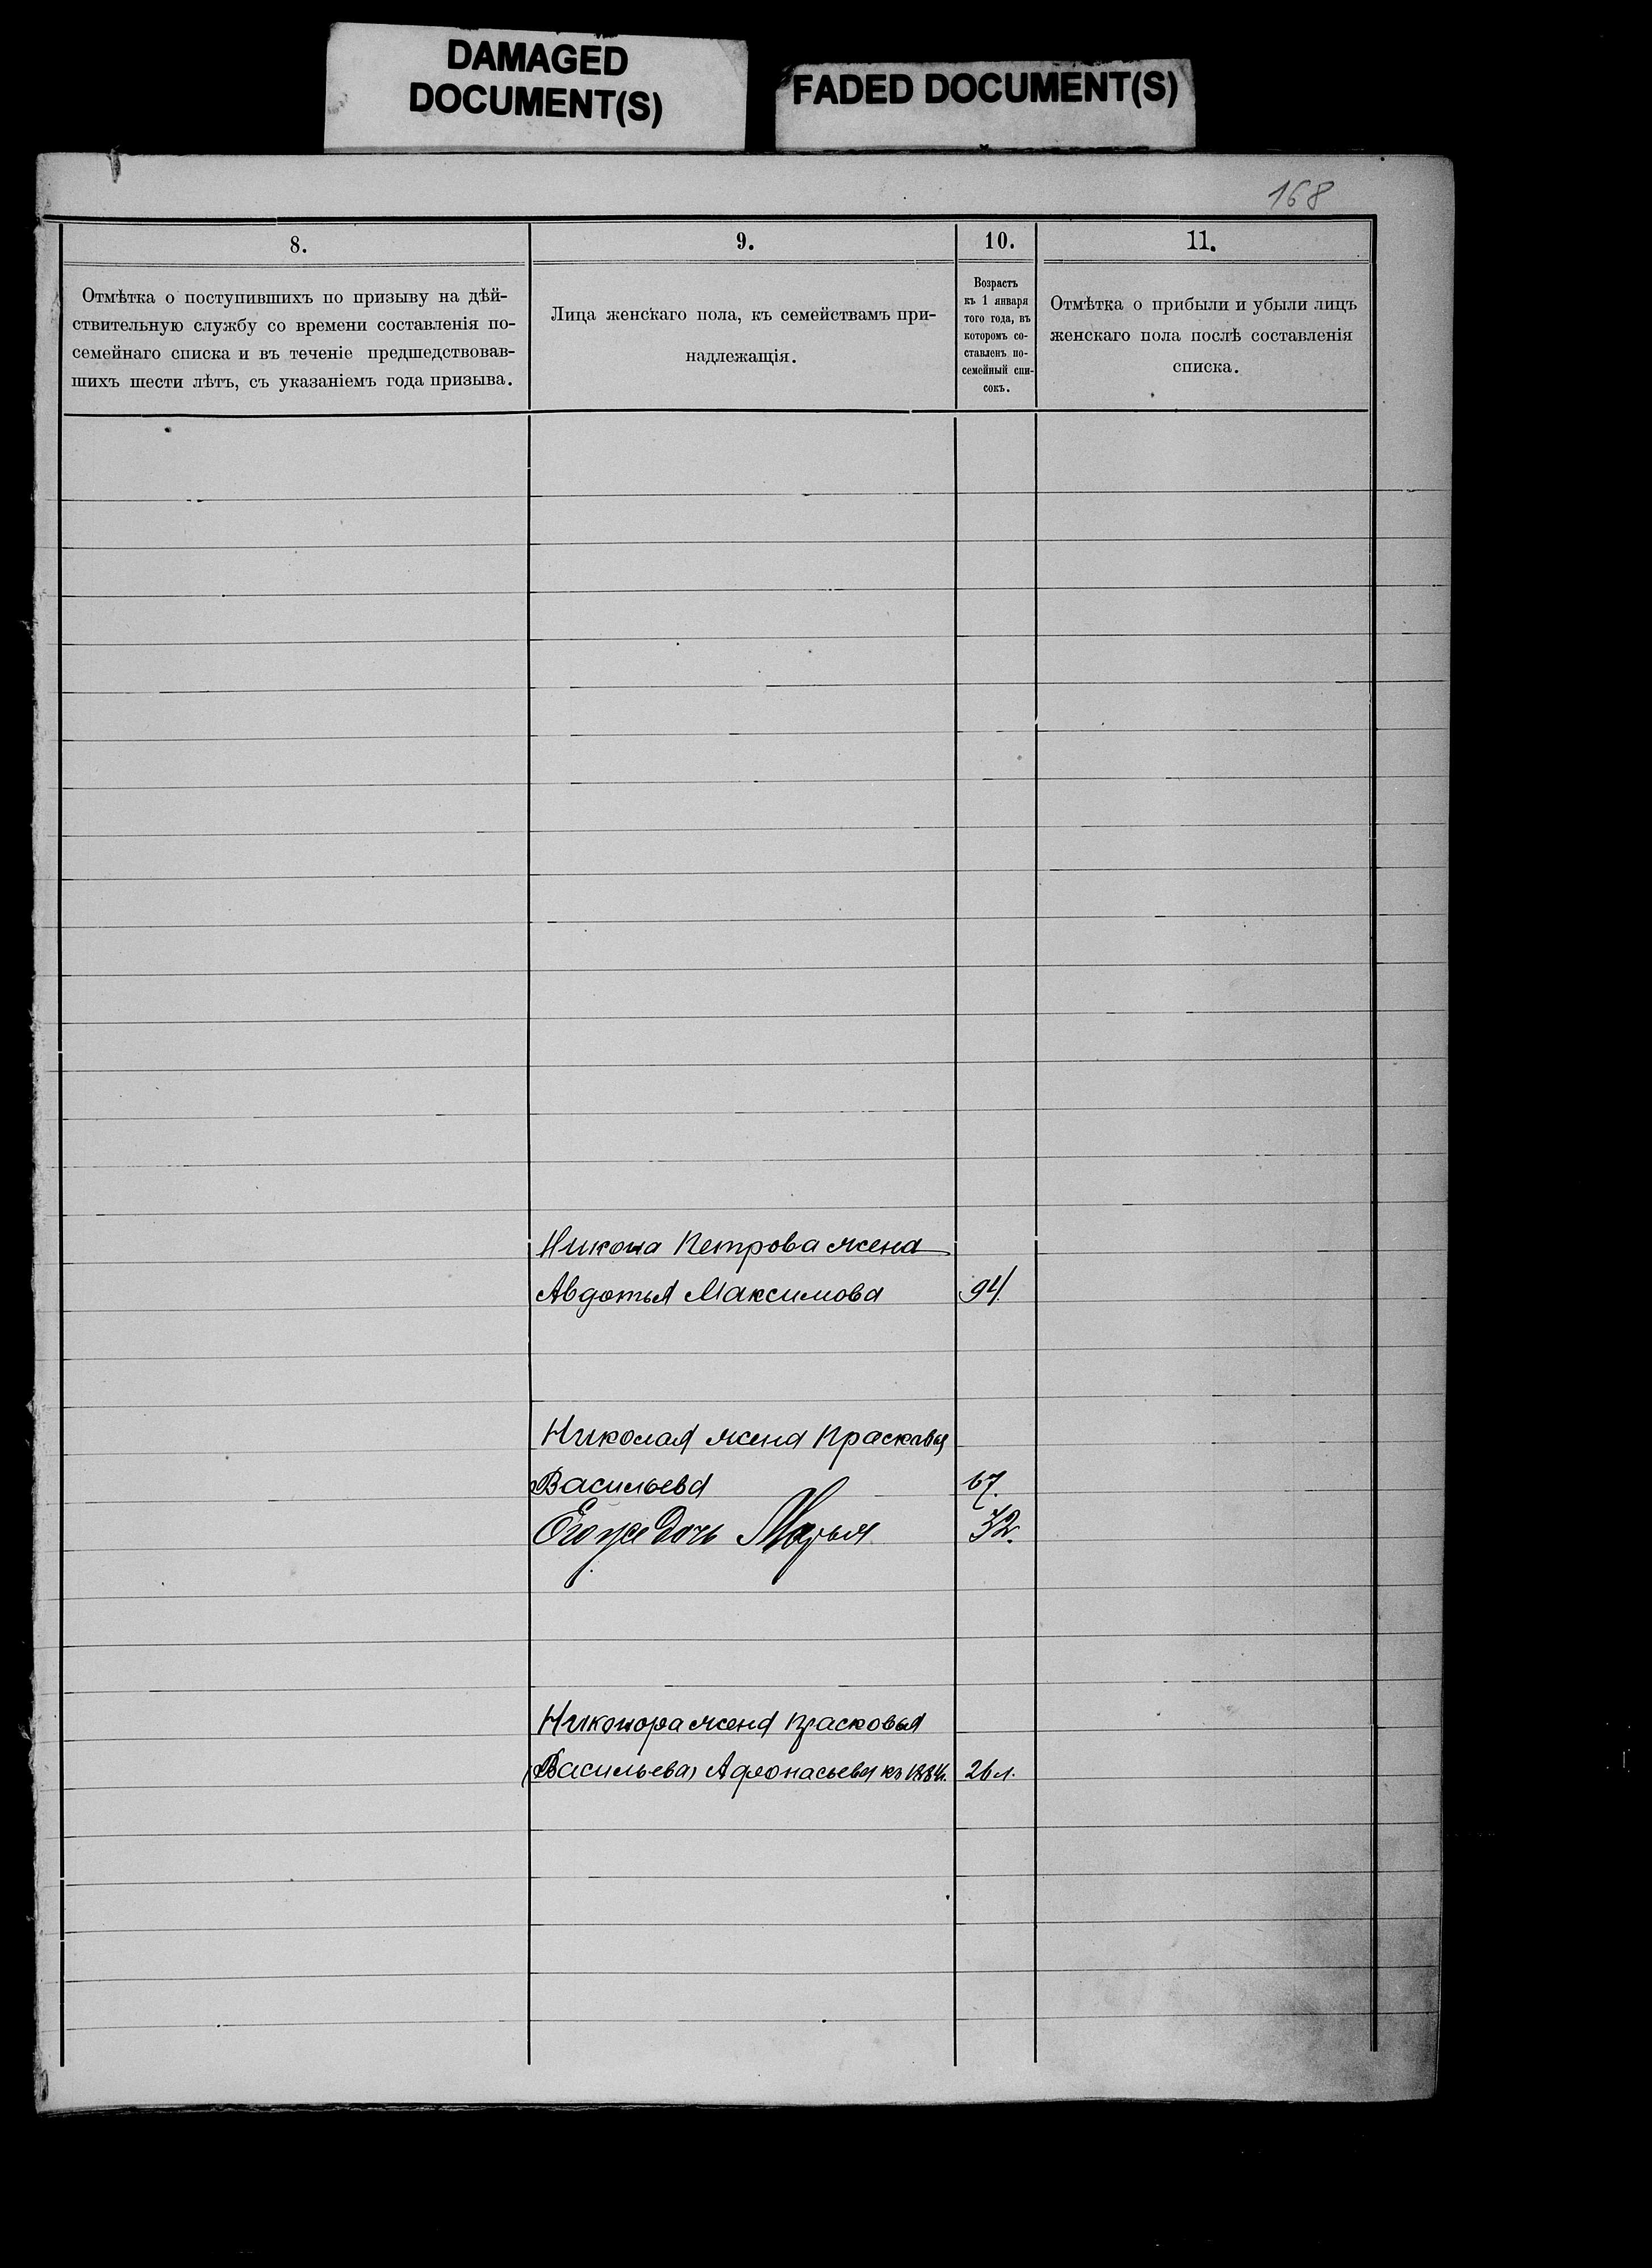 DAMAGED
DOCUMENT(S)
FADED DOCUMENT(S)
168
8.
9.
10.
11.
Отмѣтка о поступившихъ по призыву на дѣй-
ствительную службу со времени составленія по-
семейнаго списка и въ теченіе предшедствовав-
шихъ шести лѣтъ, съ указаніемъ года призыва.
Лица женскаго пола, къ семействамъ при-
надлежащія.
Возрастъ
къ 1 января
того года, въ
которомъ со-
ставленъ по-
семейный спи-
сокъ.
Отмѣтка о прибыли и убыли лицъ
женскаго пола послѣ составленія
списка.
Никона Петрова жена
Авдотья Максимова 94
Николая жена Прасковья
Васильева 67.
Его же дочь Марья 32.
Никонора жена Прасковья
(Васильева) Афонасьева 26 л.